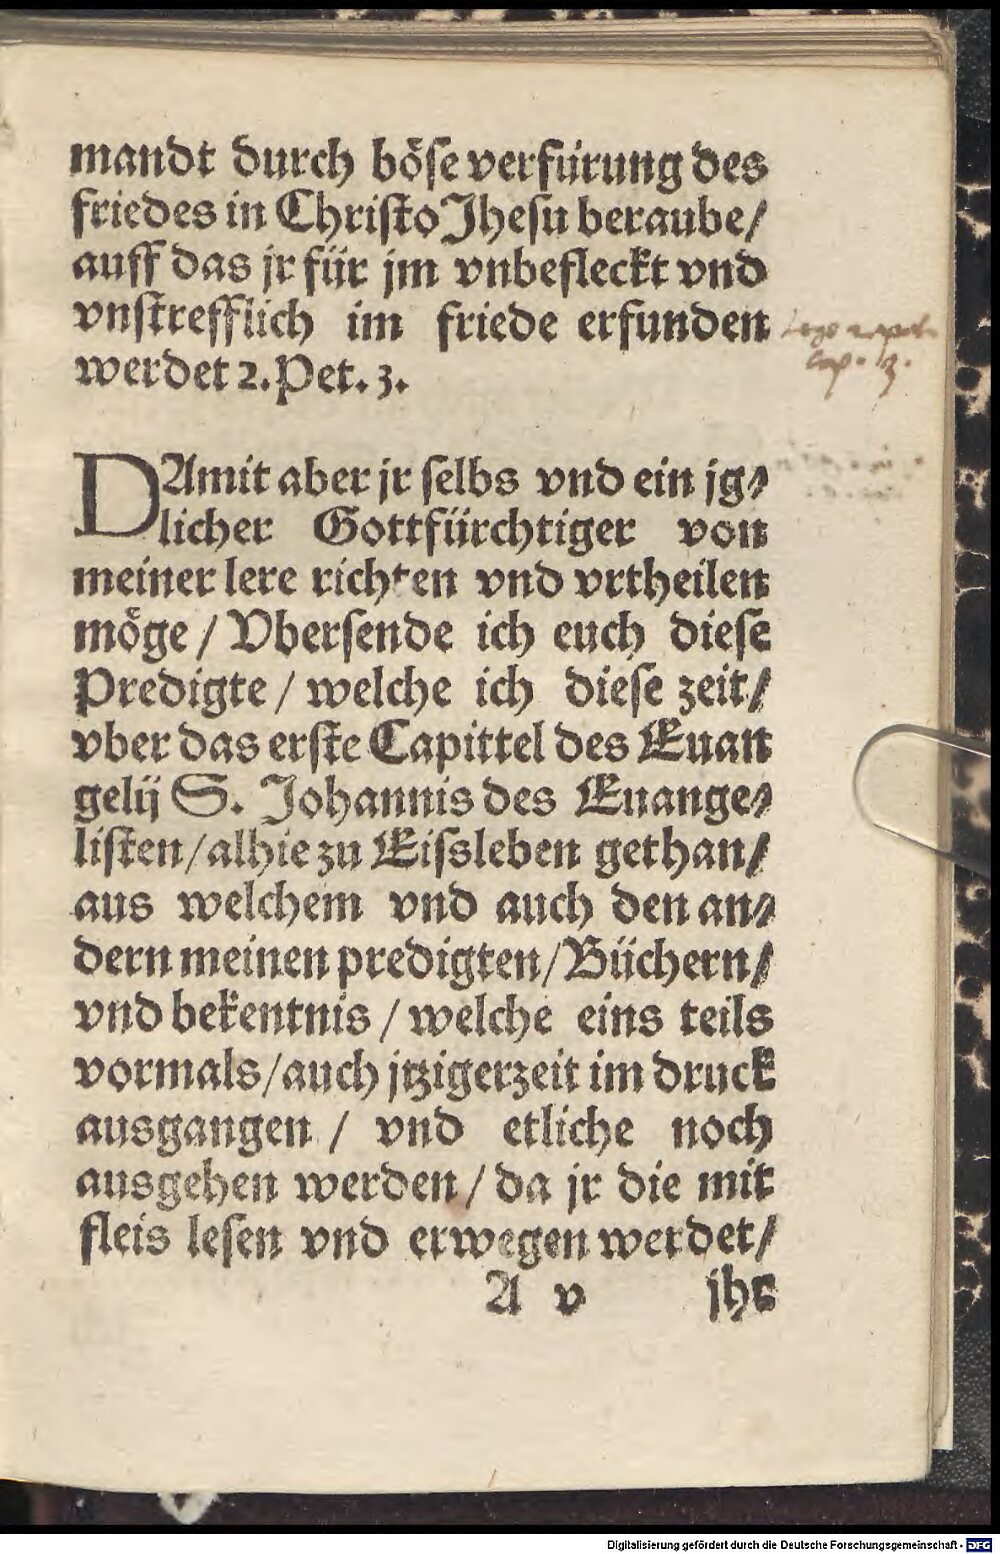 mandt durch böse verfürung des
friedes in Christo Jhesu beraube/
auff das jr für jm vnbefleckt vnd
vnstrefflich im friede erfunden
werdet 2. Pet. 3.
cap. 3.
DAmit aber jr selbs vnd ein jg⸗
licher Gottfürchtiger von
meiner lere richten vnd vrtheilen
möge / Vbersende ich euch diese
Predigte / welche ich diese zeit/
vber das erste Capittel des Euan
gelij S. Johannis des Euange⸗
listen/alhie zu Eissleben gethan/
aus welchem vnd auch den an⸗
dern meinen predigten/Büchern/
vnd bekentnis / welche eins teils
vormals/auch jtzigerzeit im druck
ausgangen / vnd etliche noch
ausgehen werden / da jr die mit
fleis lesen vnd erwegen werdet/
A v jhr
Digitalisierung gefördert durch die Deutsche Forschungsgemeinschaft - DFG